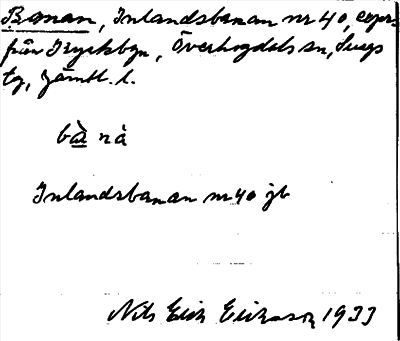 Banan, Inlandsbanan nr 40, expr.
från Ytrybyn, Överhogdals sn, Svegs
tg, Jämtl. l.
bà̱ nå
Inlandsbanan nr 40 jb
Nils Erik Eriksson 1933